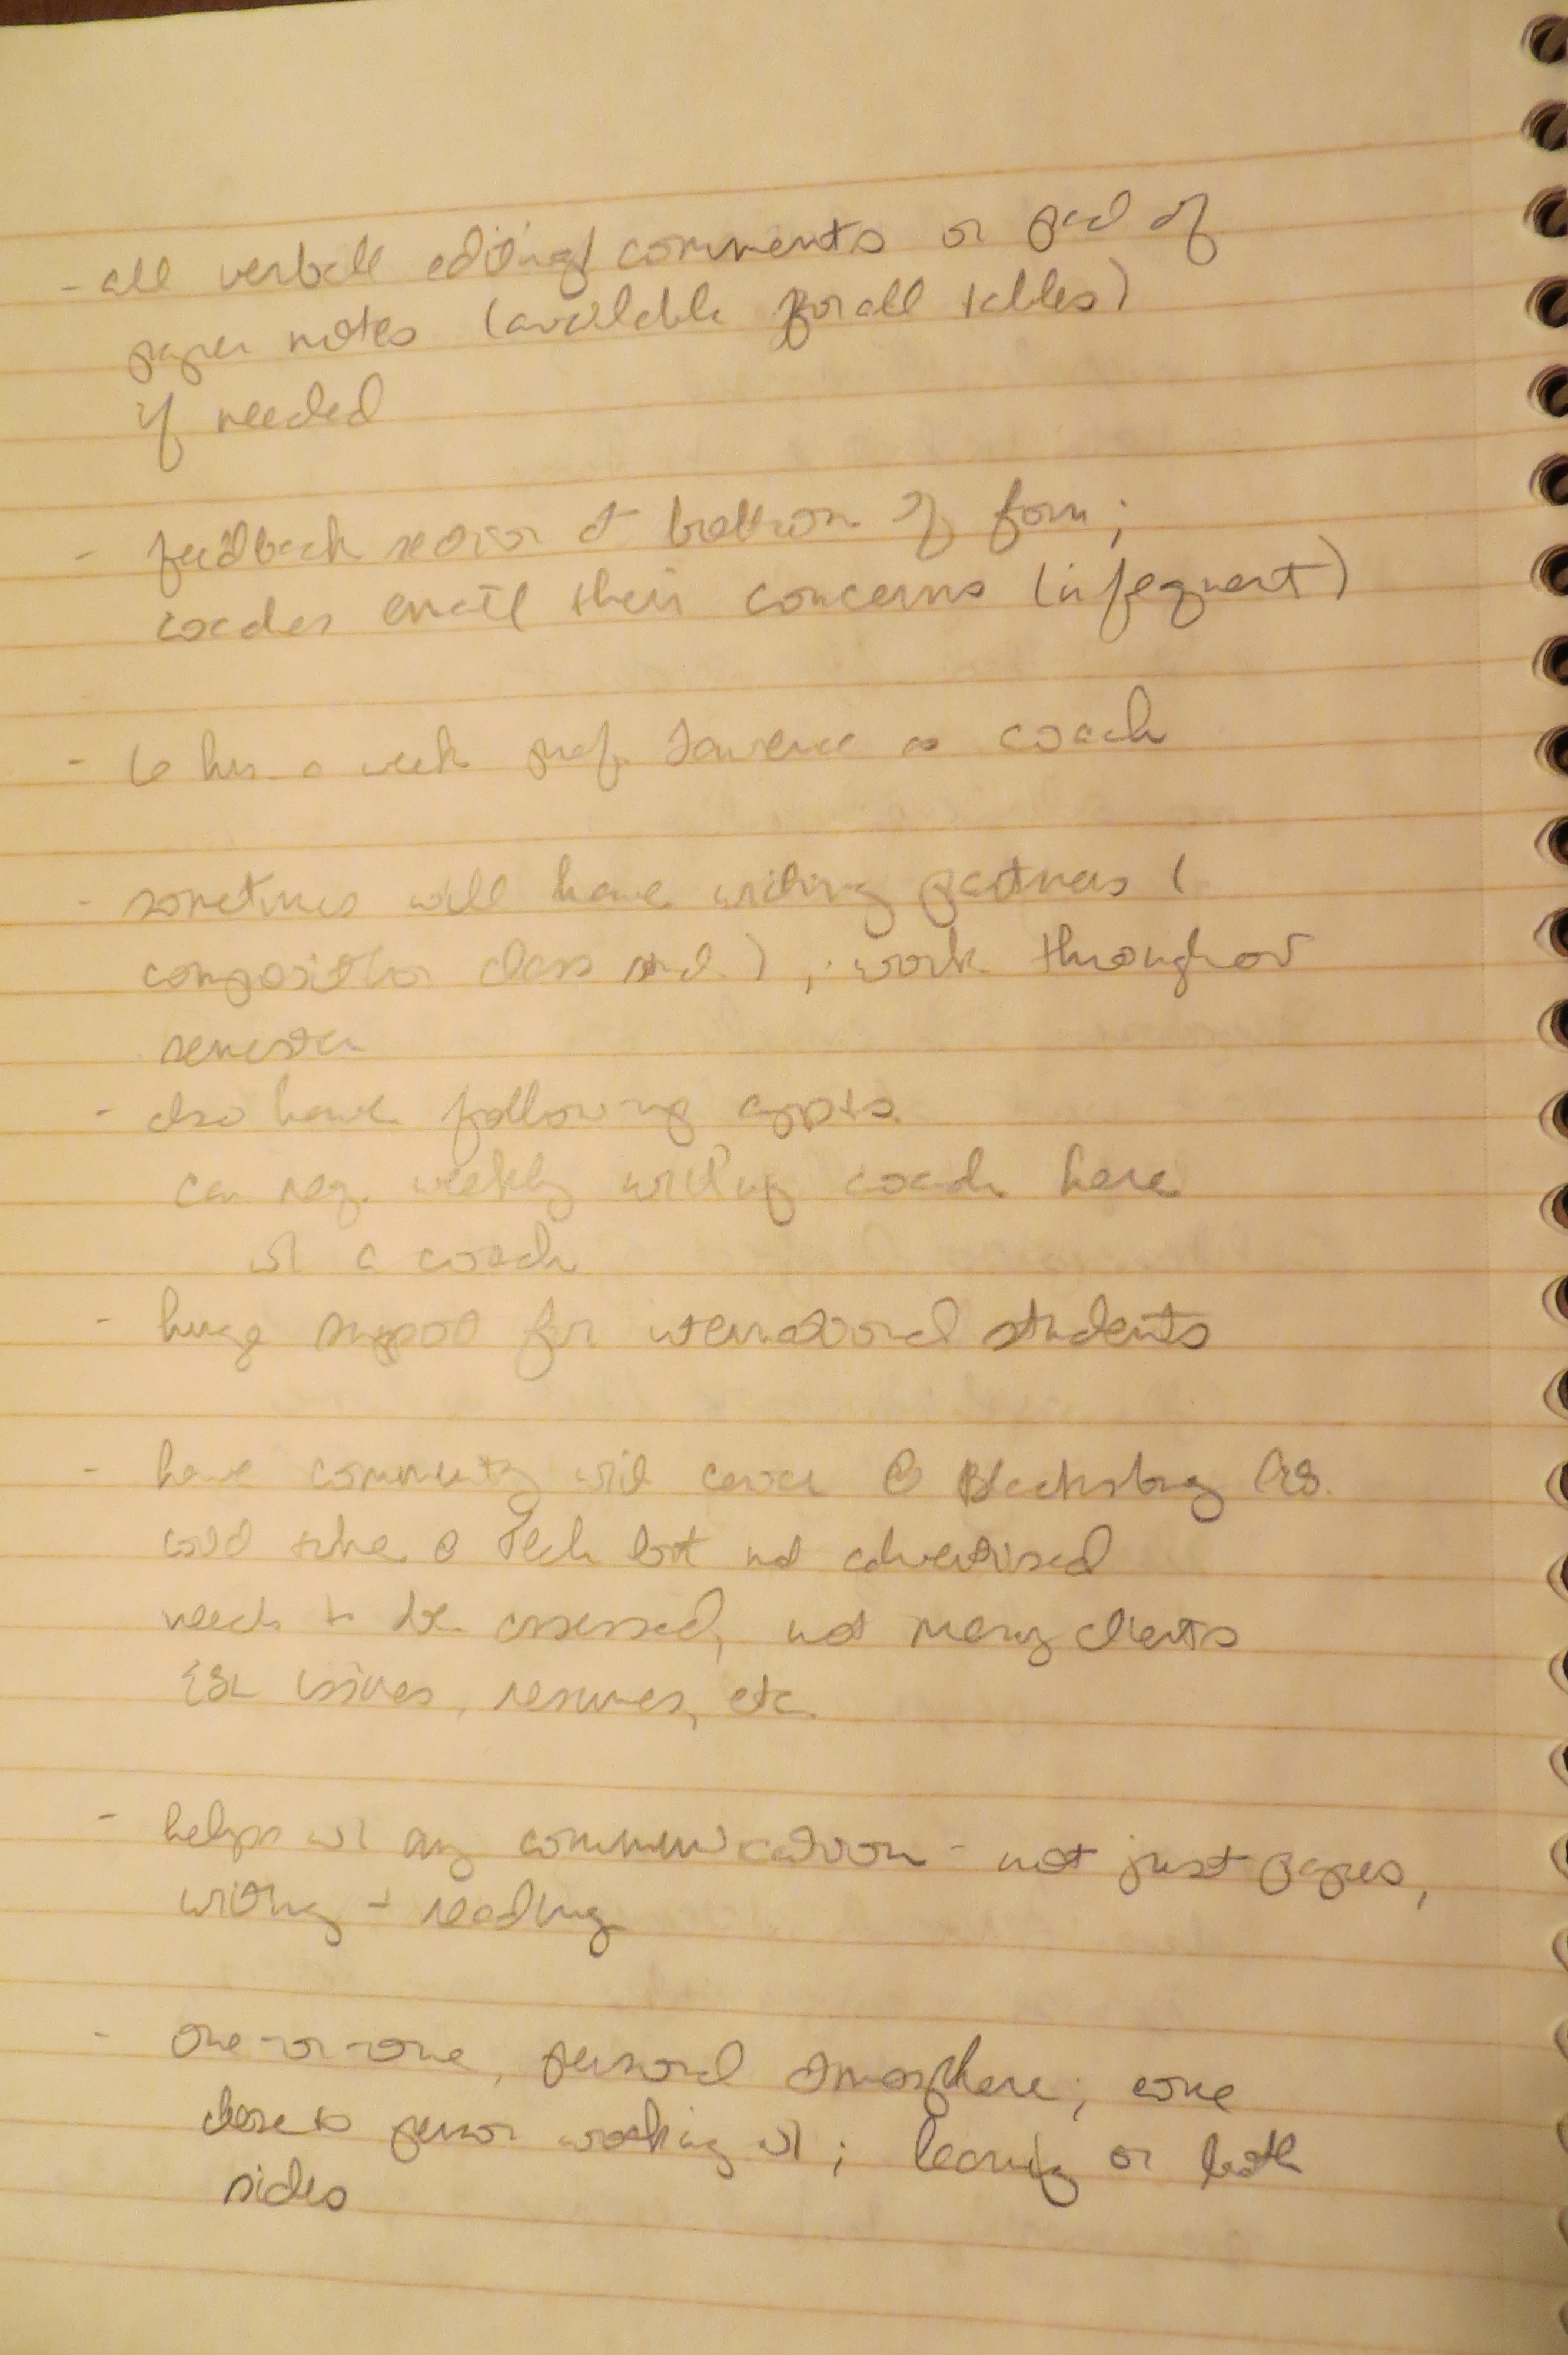 - all verball editing/comments or pad of
paper notes (available for all tables)
if needed
- feedback section at bottom of form;
coaches email their concerns (infequent)
- 6 hrs a week prof. Lawrence as coach
- sometimes will have writing partners (
composition class stud), work throughout
semester
- also have following appts
can req. weekly writing coach here
w/ a coach
- huge support for international students
- have community writ center @ Blacksburg
could take @ Tech but not advertised
needs to be assessed, not many clients
ESL issues, resumes, etc.
- helps w/ any communication - not just papers,
writing + reading
- one-on-one, personal atmosphere; come
close to person working w/; learning on both
sides